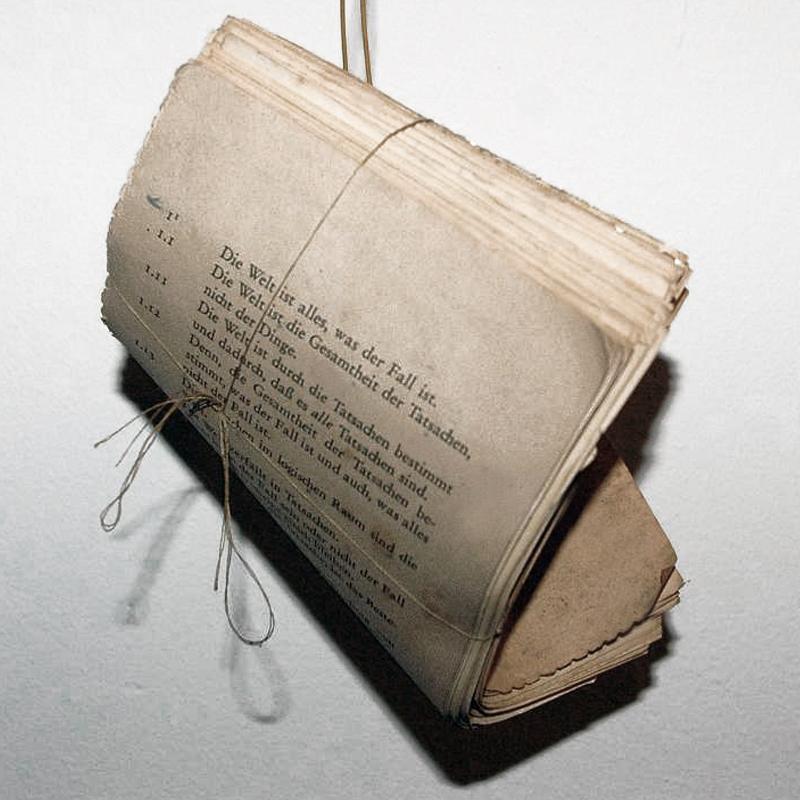 1* Die Welt ist alles, was der Fall ist.
1.1 Die Welt ist die Gesamtheit der Tatsachen,
nicht der Dinge.
1.11 Die Welt ist durch die Tatsachen bestimmt
und dadurch, daß es alle Tatsachen sind.
1.12 Denn, die Gesamtheit der Tatsachen be-
stimmt, was der Fall ist und auch, was alles
nicht der Fall ist.
1.13 im logischen Raum sind die
zerfällt in Tatsachen.
der Fall sein oder nicht der Fall